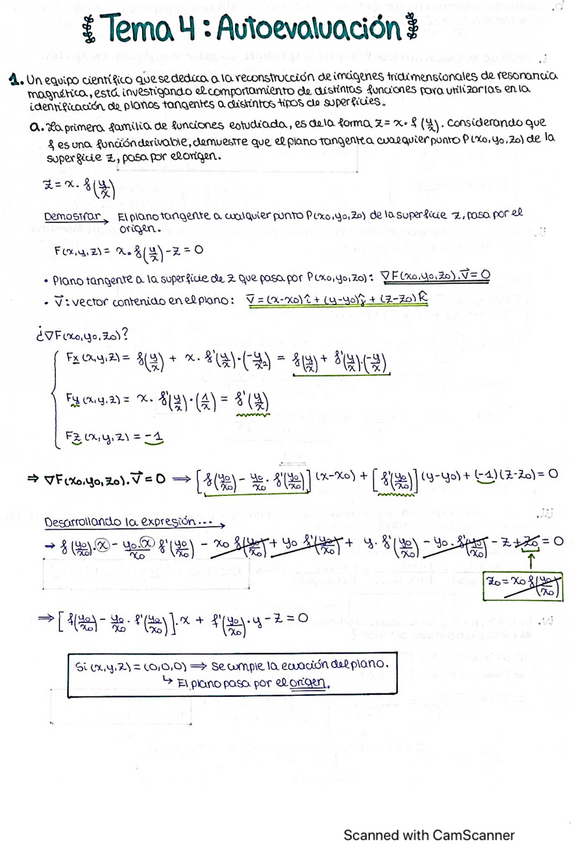 Tema 4: Autoevaluación
1. Un equipo científico que se dedica a la reconstrucción de imágenes tridimensionales de resonancia
magnética, está investigando el comportamiento de distintas funciones para utilizarlas en la
identificación de planos tangentes a distintos tipos de superficies.
a. La primera familia de funciones estudiada, es de la forma z = x · f(y/x). Considerando que
f es una función derivable, demuestre que el plano tangente a cualquier punto P(x0,y0,z0) de la
superficie z, pasa por el origen.
z = x · f(y/x)
Demostrar → El plano tangente a cualquier punto P(x0,y0,z0) de la superficie z, pasa por el
origen.
F(x,y,z) = x · f(y/x) - z = 0
• Plano tangente a la superficie de z que pasa por P(x0,y0,z0): ∇F(x0,y0,z0)·V⃗ = 0
• V⃗: vector contenido en el plano: V⃗ = (x-x0)î + (y-y0)ĵ + (z-z0)k̂
¿∇F(x0,y0,z0)?
Fx (x,y,z) = f(y/x) + x · f'(y/x)·(-y/x²) = f(y/x) + f'(y/x)·(-y/x)
Fy (x,y,z) = x · f'(y/x)·(1/x) = f'(y/x)
Fz (x,y,z) = -1
⇒ ∇F(x0,y0,z0)·V⃗ = 0 ⇒ [f(y0/x0) - y0/x0 · f'(y0/x0)](x-x0) + [f'(y0/x0)](y-y0) + (-1)(z-z0) = 0
Desarrollando la expresión... →
→ f(y0/x0)·x - y0·x/x0 f'(y0/x0) - x0 f(y0/x0) + y0 f'(y0/x0) + y·f'(y0/x0) - y0·f'(y0/x0) - z + z0 = 0
z0 = x0 f(y0/x0)
⇒ [f(y0/x0) - y0/x0 · f'(y0/x0)]·x + f'(y0/x0)·y - z = 0
Si (x,y,z) = (0,0,0) ⇒ Se cumple la ecuación del plano.
↳ El plano pasa por el origen.
Scanned with CamScanner